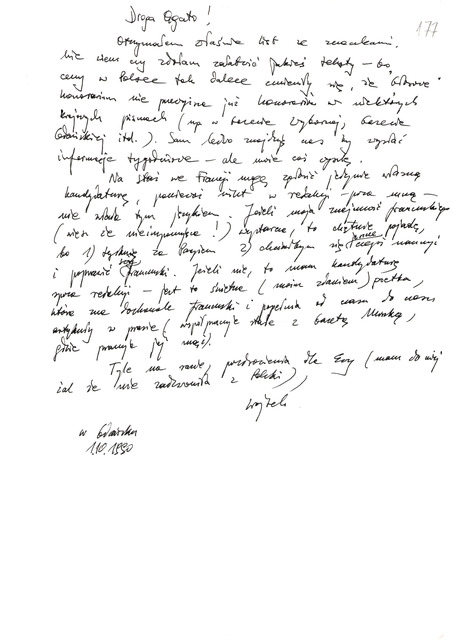 177
Droga Agato!
Otrzymałem właśnie list ze znaczkami.
Nie wiem czy zdołam załatwić jakieś teksty – bo
ceny w Polsce tak dalece zmieniły się, że
honorarium nie przewyższa już honorariów w niektórych
krajowych pismach (np w Gazecie Wyborczej, Gazecie
Gdańskiej itd.). Sam ledwo znajduję czas by wysłać
informacje tygodniowe – ale może coś
Na staż we Francji mogę zgłosić jedynie własną
kandydaturę, ponieważ nikt w redakcji – poza mną –
nie włada tym językiem. Jeżeli moja znajomość francuskiego
(wiesz że nieimponująca!) wystarczy, to chętnie pojadę,
bo 1) tęsknię za Paryżem 2) chciałbym się czegoś nauczyć
i poprawić francuski. Jeżeli nie, to mam kandydaturę
spoza redakcji – jest to świetna (moim zdaniem)
która zna doskonale francuski i popełnia od czasu do czasu
artykuły w prasie (współpracuje stale z Gazetą Morską,
gdzie pracuje jej mąż).
Tyle na razie, pozdrowienia dla Ewy (mam do niej
żal że nie zadzwoniła z Polski),
Wojtek
w Gdańsku
1.10.1990